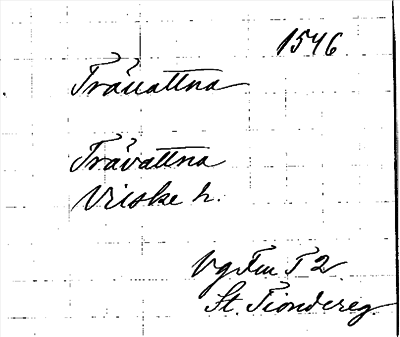 1546
Träuattna
Trävattna
Vilske h.
Vg Fm T 2
St. Tiondereg.